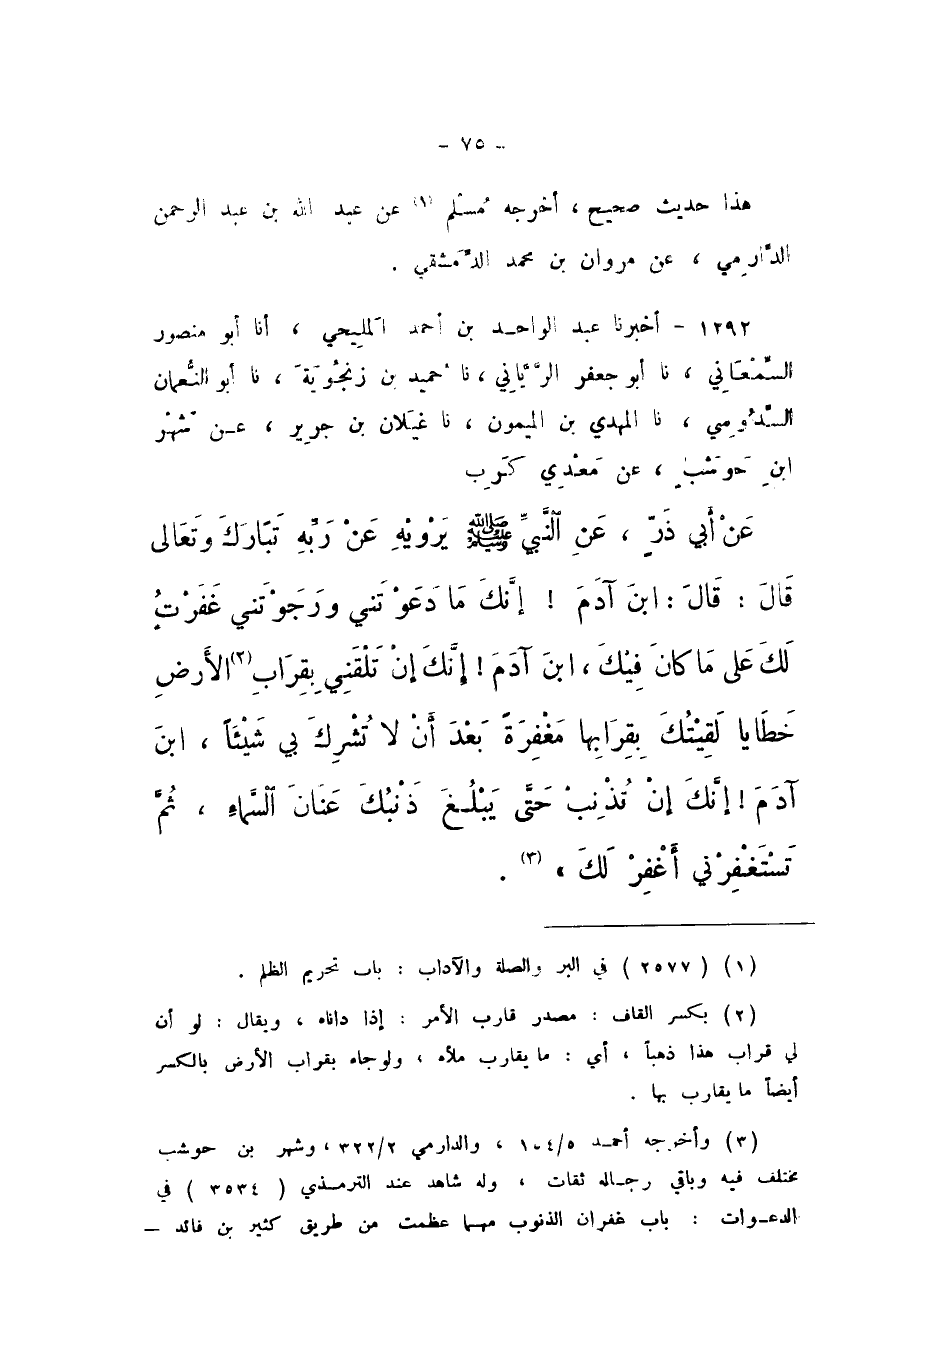 - ٧٥ -
هذا حديث صحيح ، أخرجه مُسْلم (١) عن عبد الله بن عبد الرحمن
الدَّارِمي ، عن مروان بن محمد الدِّمَشقي .
١٢٩٢ - أخبرنا عبد الواحد بن أحمد المَلِيحي ، أنا أبو منصور
السَّمْعَاني ، نا أبو جعفر الرَّيَّاني ، نا حُميد بن زنجُويَة ، نا أبو النُّعمان
السَّدُوسي ، نا المهدي بن الميمون ، نا غَيلان بن جرير ، عن شَهْر
ابنِ حَوشَبٍ ، عن مَعْدِي كَرِب
عَنْ أَبي ذَرٍّ ، عَنِ النَّبيِّ ﷺ يَرْوِيْهِ عَنْ رَبِّهِ تَبَارَكَ وَتَعَالى
قَالَ : قَالَ : ابنَ آدَمَ ! إنَّكَ مَا دَعَوْتَني ورَجَوْتَني غَفَرْتُ
لَكَ عَلى مَا كانَ فِيْكَ ، ابنَ آدَمَ ! إنَّكَ إنْ تَلْقَنِي بِقِرَابِ (٢) الأَرضِ
خَطَايا لَقِيْتُكَ بِقِرَابِها مَغْفِرَةً بَعْدَ أَنْ لا تُشْرِكَ بي شَيْئَاً ، ابنَ
آدَمَ ! إنَّكَ إنْ تُذْنِبْ حَتَّى يَبْلُغَ ذَنْبُكَ عَنَانَ السَّمَاءِ ، ثُمَّ
تَسْتَغْفِرْني أَغْفِرْ لَكَ » (٣) .
(١) ( ٢٥٧٧ ) في البر والصلة والآداب : باب تحريم الظلم .
(٢) بكسر القاف : مصدر قارب الأمر : إذا داناه ، ويقال : لو أن
لي قراب هذا ذهباً ، أي : ما يقارب ملأه ، ولو جاء بقراب الأرض بالكسر
أيضاً ما يقارب بها .
(٣) وأخرجه أحمد ١٠٤/٥ ، والدارمي ٣٢٢/٢ ، وشهر بن حوشب
مختلف فيه وباقي رجاله ثقات ، وله شاهد عند الترمذي ( ٣٥٣٤ ) في
الدعوات : باب غفران الذنوب مهما عظمت من طريق كثير بن فائد —